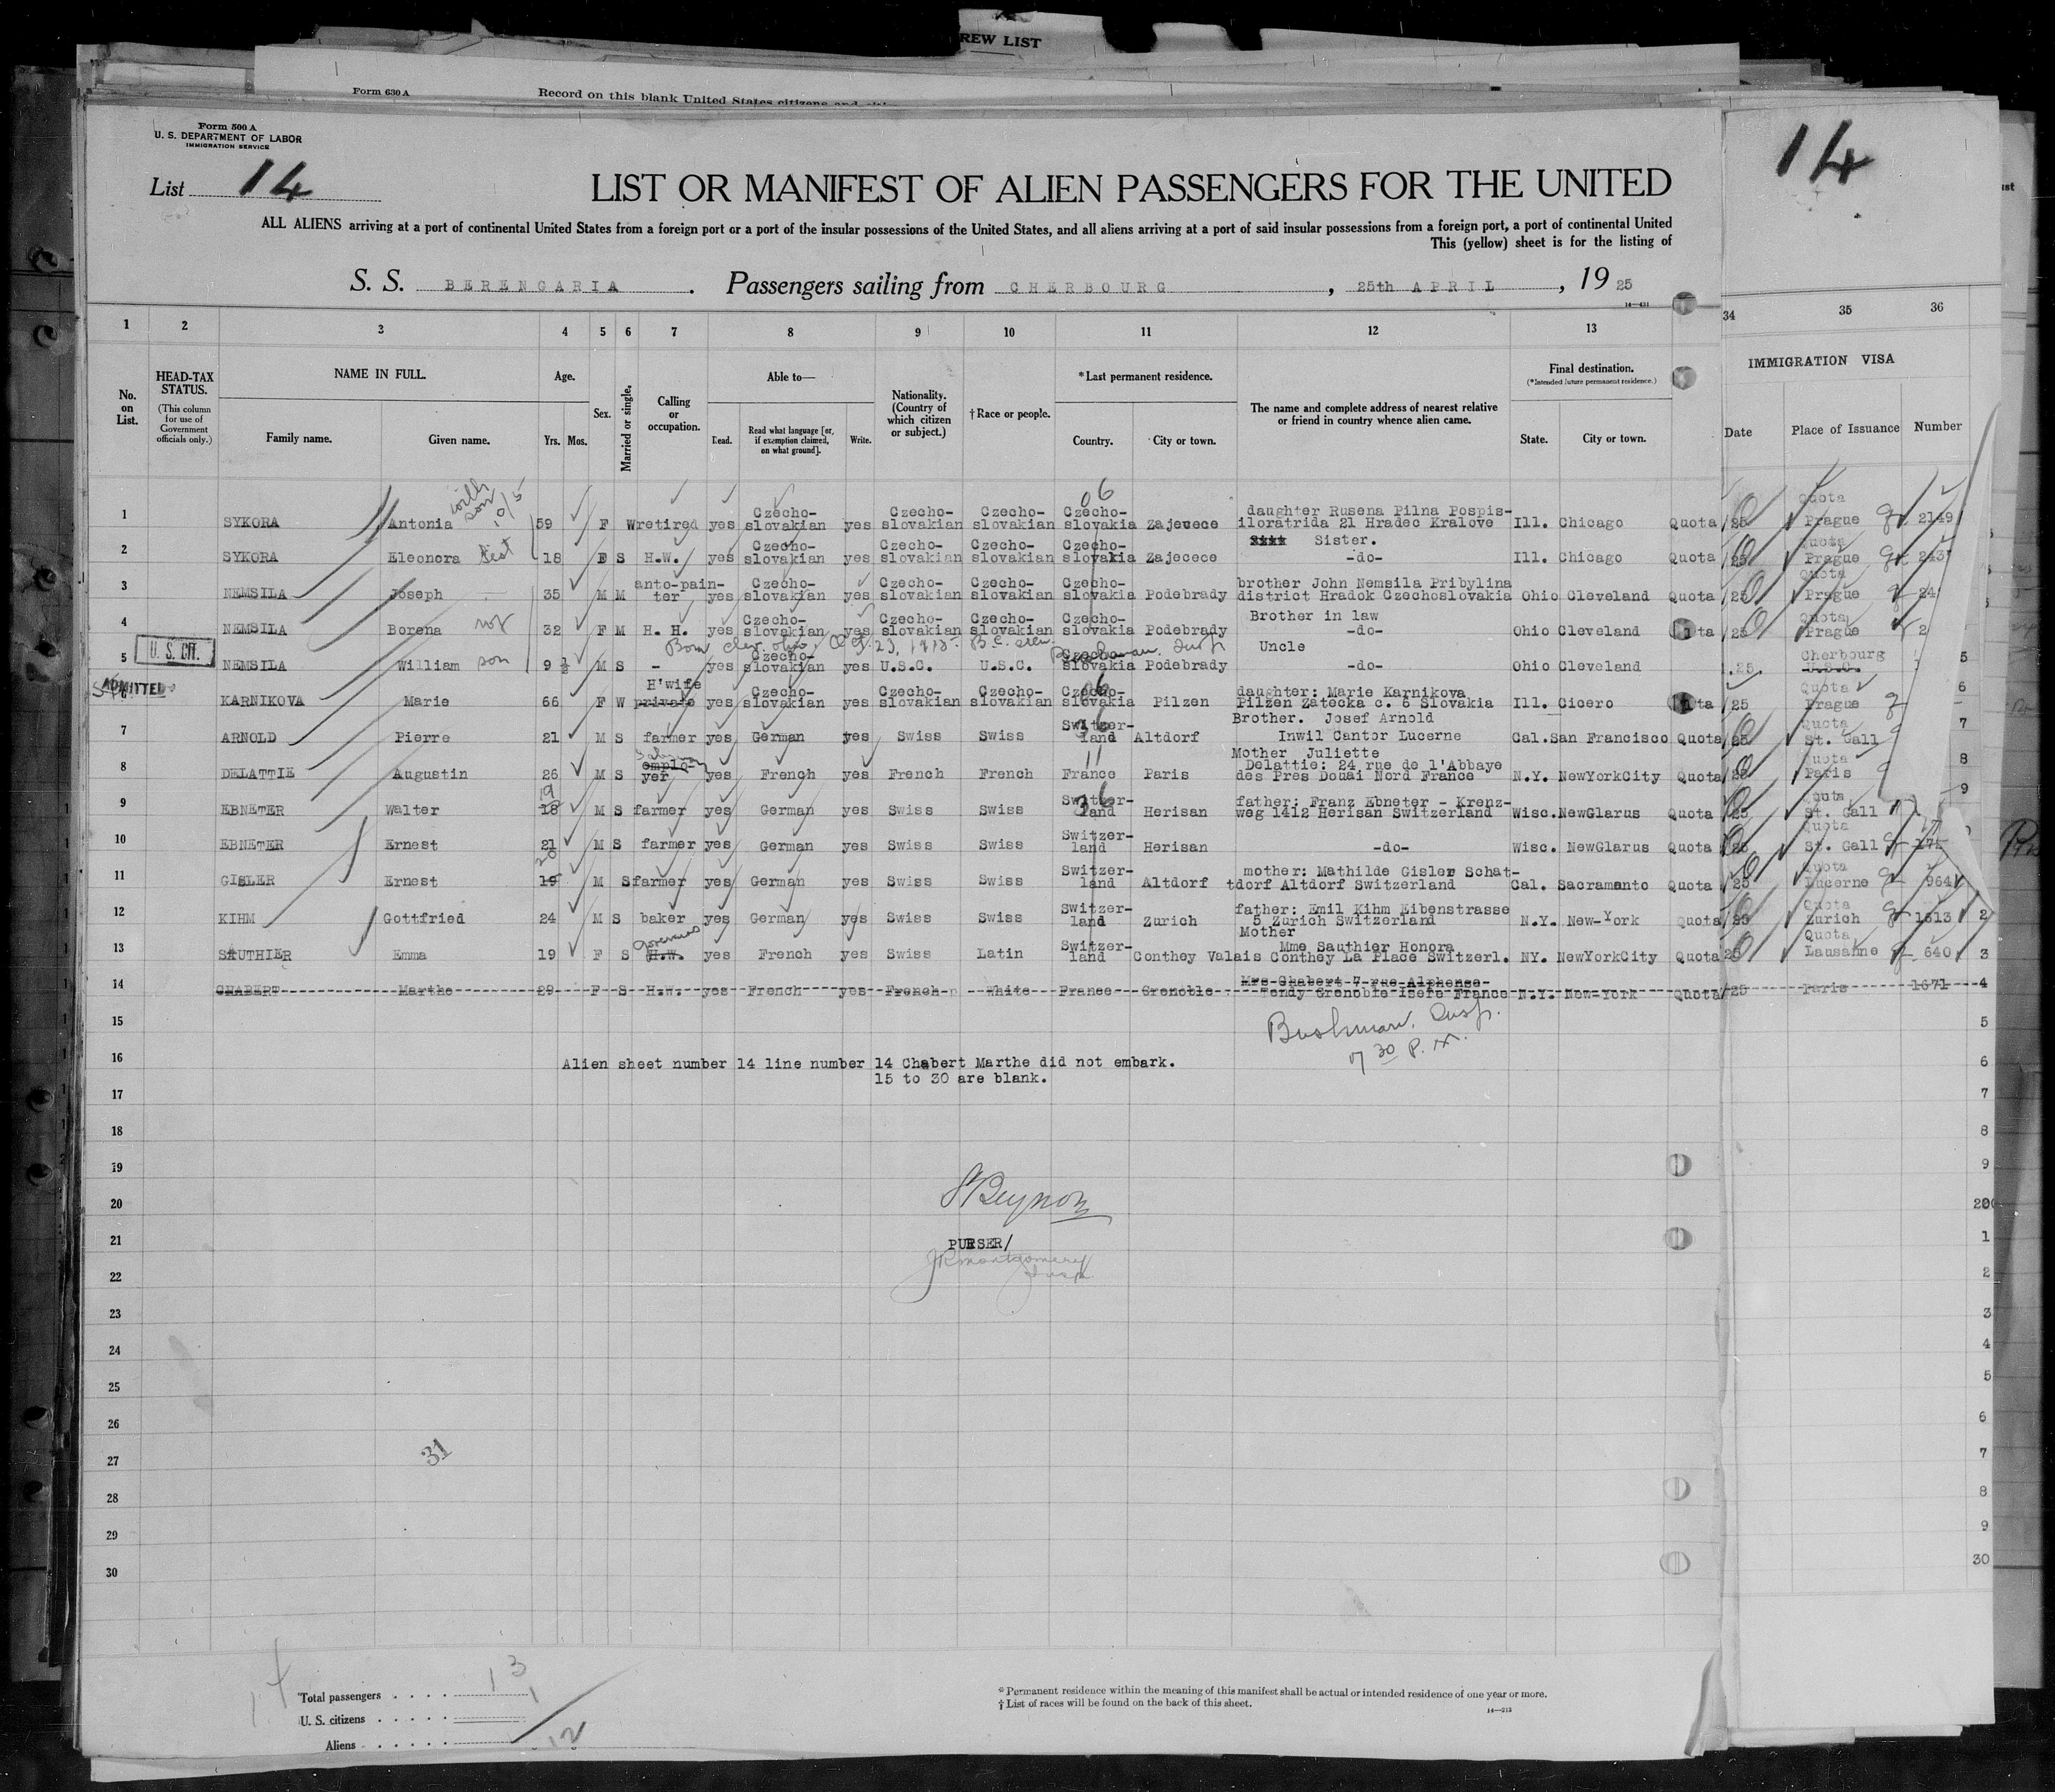 REW LIST
Form 630 A Record on this blank United States citizens and
Form 500 A
U. S. DEPARTMENT OF LABOR
IMMIGRATION SERVICE
List 14
14
LIST OR MANIFEST OF ALIEN PASSENGERS FOR THE UNITED
ALL ALIENS arriving at a port of continental United States from a foreign port or a port of the insular possessions of the United States, and all aliens arriving at a port of said insular possessions from a foreign port, a port of continental United
This (yellow) sheet is for the listing of
S. S. BERENGARIA . Passengers sailing from CHERBOURG , 25th APRIL , 19 25
1 2 3 4 5 6 7 8 9 10 11 12 13 34 35 36
No. on List.
HEAD-TAX STATUS.
(This column for use of Government officials only.)
NAME IN FULL.
Family name. Given name.
Age.
Yrs. Mos.
Sex.
Married or single.
Calling or occupation.
Able to—
Read. Read what language [or, if exemption claimed, on what ground]. Write.
Nationality. (Country of which citizen or subject.)
†Race or people.
*Last permanent residence.
Country. City or town.
The name and complete address of nearest relative or friend in country whence alien came.
Final destination.
(*Intended future permanent residence.)
State. City or town.
IMMIGRATION VISA
Date Place of Issuance Number
1 SYKORA Antonia 59 F W retired yes Czecho-slovakian yes Czecho-slovakian Czecho-slovakian Czecho-slovakia Zajecece daughter Rusena Pilna Pospis-iloratrida 21 Hradec Kralove Ill. Chicago Quota 25 Quota Prague 2149
2 SYKORA Eleonora 18 F S H.W. yes Czecho-slovakian yes Czecho-slovakian Czecho-slovakian Czecho-slovakia Zajecece Sister. -do- Ill. Chicago Quota 25 Quota Prague 243
3 NEMSILA Joseph 35 M M anto-pain-ter yes Czecho-slovakian yes Czecho-slovakian Czecho-slovakian Czecho-slovakia Podebrady brother John Nemsila Pribylina district Hradok Czechoslovakia Ohio Cleveland Quota 25 Quota Prague 24
4 NEMSILA Borena 32 F M H. H. yes Czecho-slovakian yes Czecho-slovakian Czecho-slovakian Czecho-slovakia Podebrady Brother in law -do- Ohio Cleveland ta 25 Quota Prague 2
U. S. CIT.
Born Clev. Ohio, Oct. 23, 1915. B.C. seen
5 NEMSILA William son 9 ½ M S - yes Czecho-slovakian yes U.S.C. U.S.C. Czecho-slovakia Podebrady Uncle -do- Ohio Cleveland .25. Cherbourg U.S.C. 5
ADMITTED
KARNIKOVA Marie 66 F W H'wife private yes Czecho-slovakian yes Czecho-slovakian Czecho-slovakian Czecho-slovakia Pilzen daughter: Marie Karnikova Pilzen Zatecka c. 6 Slovakia Ill. Cicero ta 25 Quota Prague 6
7 ARNOLD Pierre 21 M S farmer yes German yes Swiss Swiss Switzer-land Altdorf Brother. Josef Arnold Inwil Cantor Lucerne Cal. San Francisco Quota 25 Quota St. Gall 7
8 DELATTIE Augustin 26 M S employer yes French yes French French France Paris Mother Juliette Delattie: 24 rue de l'Abbaye des Pres Douai Nord France N.Y. NewYorkCity Quota 25 Quota Paris 8
9 EBNETER Walter 18 19 M S farmer yes German yes Swiss Swiss Switzer-land Herisan father: Franz Ebneter - Krenz-weg 1412 Herisan Switzerland Wisc. NewGlarus Quota 25 Quota St. Gall 9
10 EBNETER Ernest 21 M S farmer yes German yes Swiss Swiss Switzer-land Herisan -do- Wisc. NewGlarus Quota 25 Quota St. Gall
11 GISLER Ernest 19 20 M S farmer yes German yes Swiss Swiss Switzer-land Altdorf mother: Mathilde Gisler Schat-tdorf Altdorf Switzerland Cal. Sacramanto Quota 25 Quota Lucerne 964
12 KIHM Gottfried 24 M S baker yes German yes Swiss Swiss Switzer-land Zurich father: Emil Kihm Eibenstrasse 5 Zurich Switzerland N.Y. New-York Quota 25 Quota Zurich 1613 2
13 SAUTHIER Emma 19 F S governess H.W. yes French yes Swiss Latin Switzer-land Conthey Valais Mother Mme Sauthier Honora Conthey La Place Switzerl. NY. NewYorkCity Quota 25 Quota Lausanne 640 3
14 CHABERT Marthe 29 F S H.W. yes French yes French White France Grenoble Mrs Chabert 7 rue Alphonse Fendy Grenoble Isere France N.Y. New-York Quota 25 Paris 1671 4
15 Bushman, Insp. 5
7 30 P.M.
16 Alien sheet number 14 line number 14 Chabert Marthe did not embark. 6
15 to 30 are blank.
17 7
18 8
19 9
20 20
21 PURSER/ 1
JR Montgomery
Insp
22 2
23 3
24 4
25 5
26 6
31
27 7
28 8
29 9
30 30
Total passengers 13
U. S. citizens 1
Aliens 12
14
*Permanent residence within the meaning of this manifest shall be actual or intended residence of one year or more.
†List of races will be found on the back of this sheet.